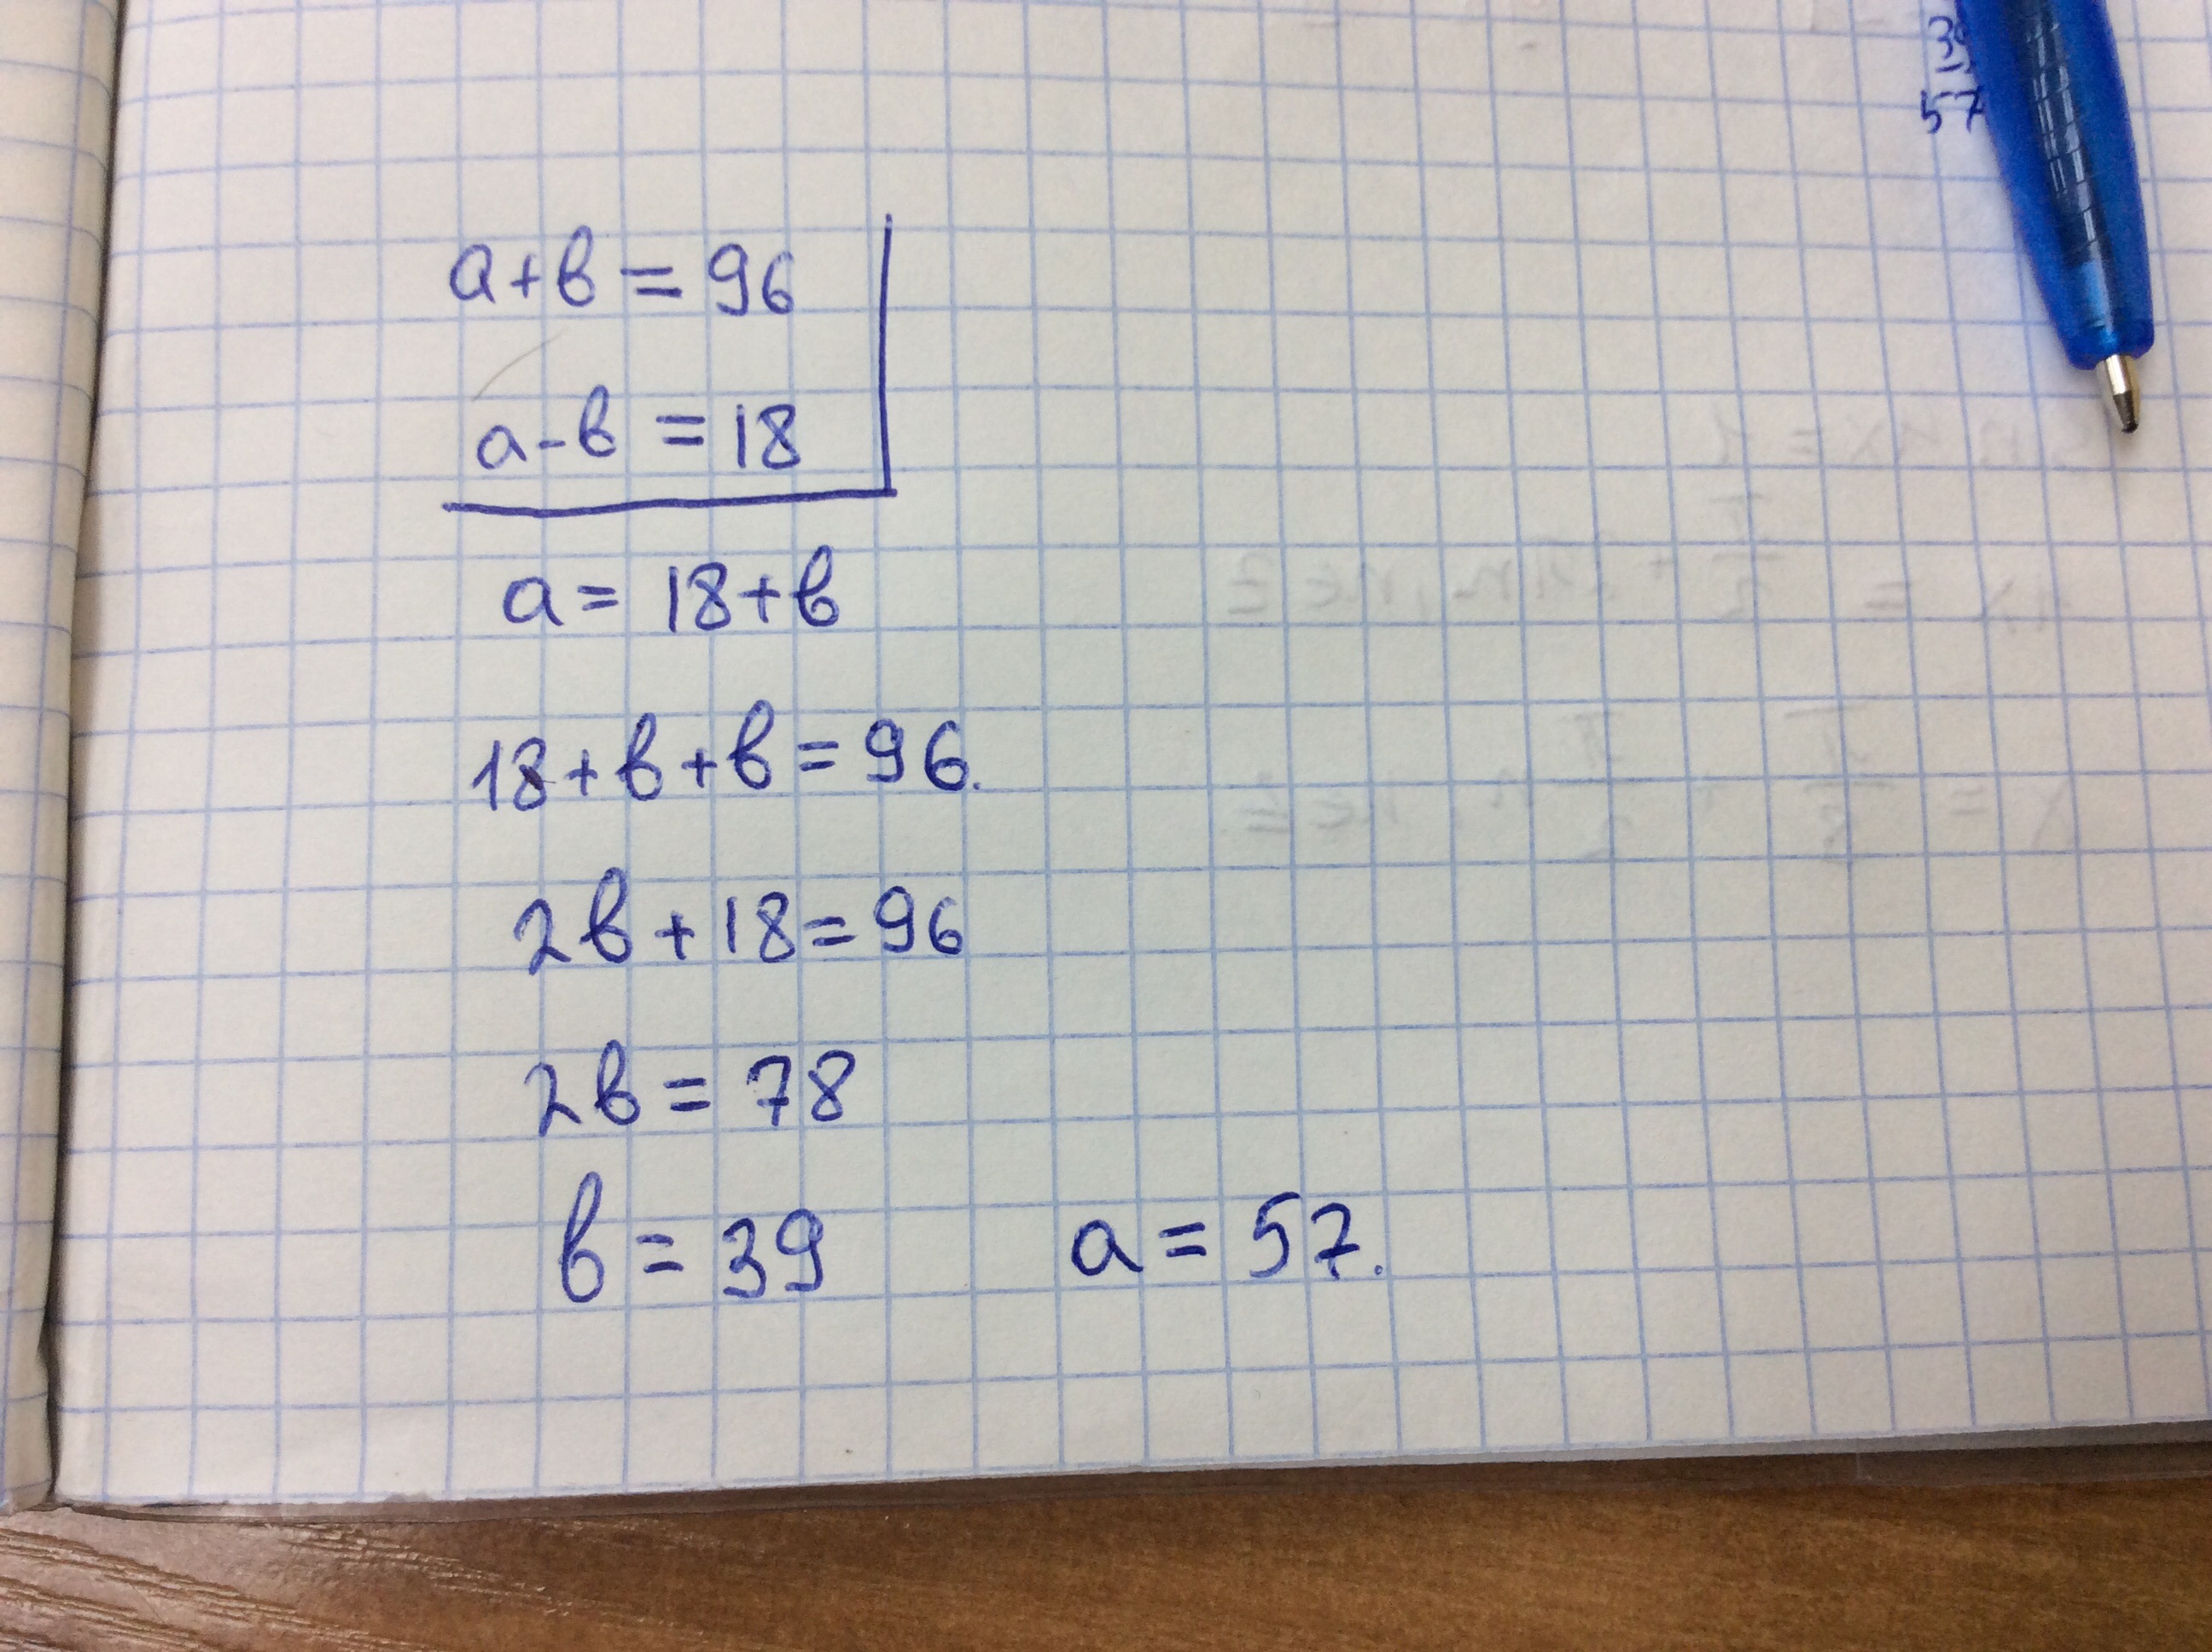 57
a+b=96
a-b=18
a=18+b
18+b+b=96.
2b+18=96
2b=78
b=39 a=57.